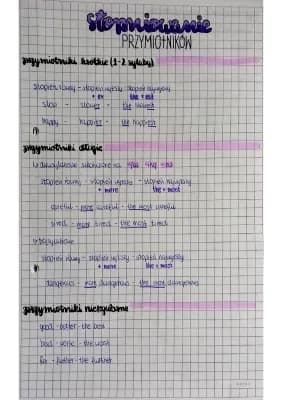 stopniowanie
PRZYMIOTNIKÓW
przymiotniki krótkie (1-2 sylaby)
stopień równy - stopień wyższy - stopień najwyższy
+ er the + est
slow - slower - the slowest
happy - happier - the happiest
przymiotniki długie
↳ dwusylabowe zakończone na
stopień równy - stopień wyższy - stopień najwyższy
+ more the + most
careful - more careful - the most careful
tired - more tired - the most tired
stopień równy - stopień wyższy - stopień najwyższy
+ more the + most
dangerous - more dangerous - the most dangerous
przymiotniki nieregularne
good - better - the best
bad - worse - the worst
far - further - the furthest